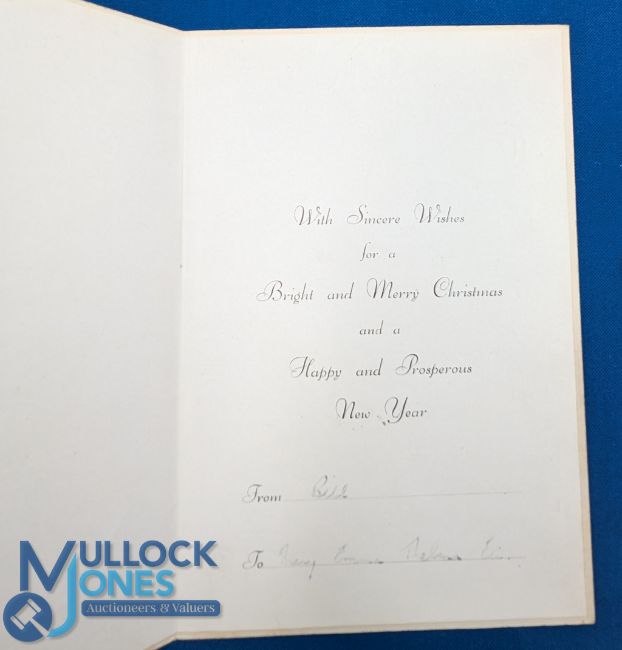 With Sincere Wishes
for a
Bright and Merry Christmas
and a
Happy and Prosperous
New Year
From Bill
To Emma
MULLOCK
JONES
Auctioneers & Valuers